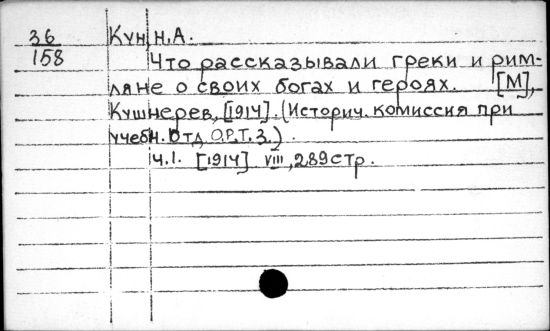 36 Кун, Н.А.
158 Что рассказывали греки и рим-
ляне о своих богах и героях. [М],
Кушнерев, [1914]. (Историч. комиссия при
учебн. Отд. О.Р.Т.З.).
Ч.I. [1914] VIII, 289стр.